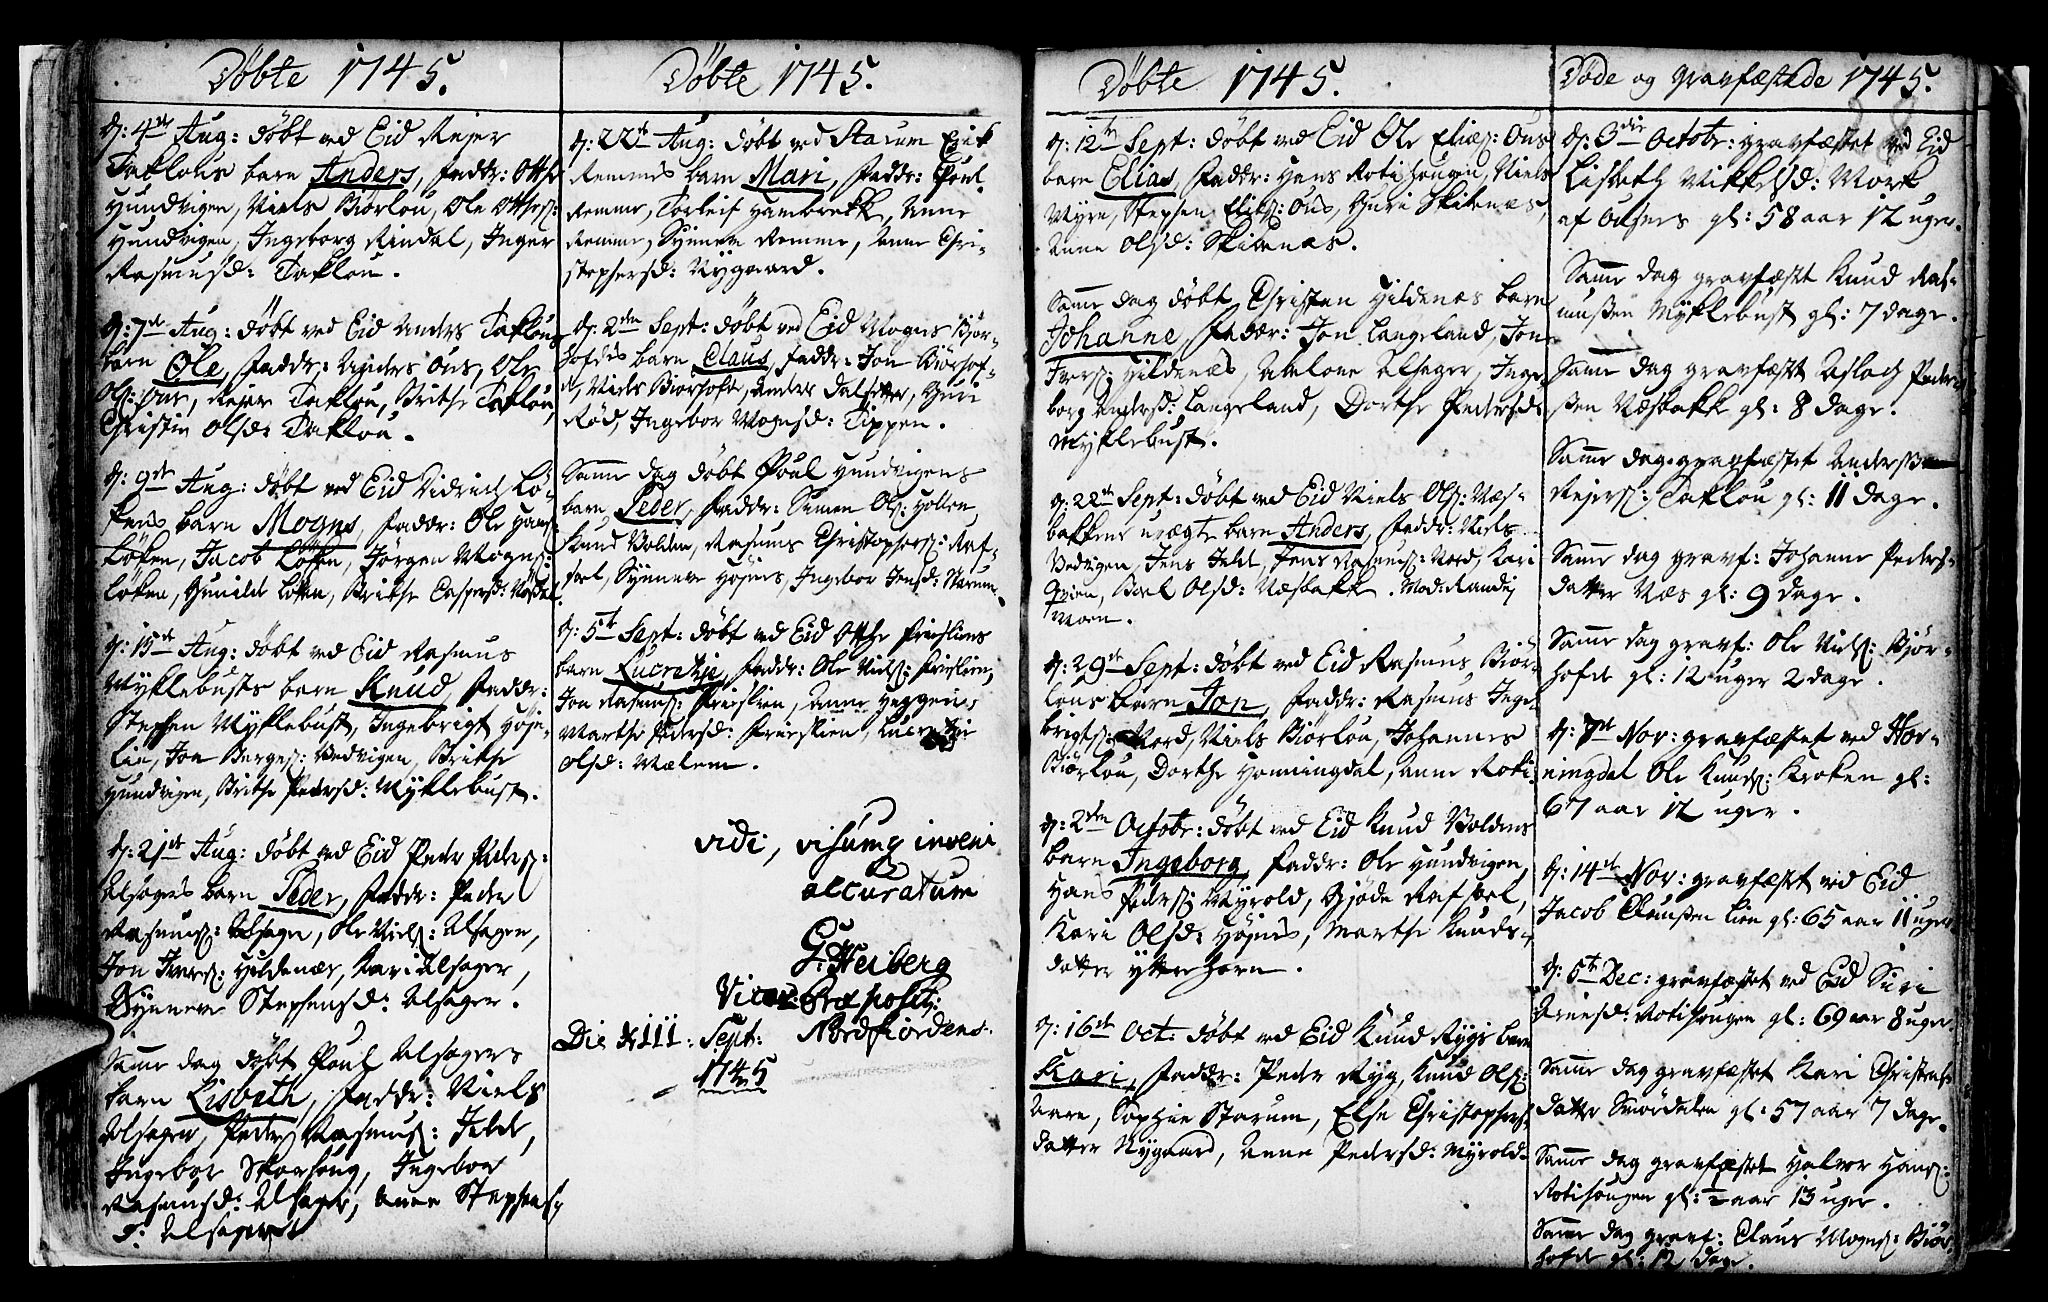 Döbte 1745.
d: 4de Aug: döbt ved Eid Rejer
Taklous barn Anders, Faddr: Otthe
Hundvigen, Niels Biörlou, Ole Otthes:
Hundvigen, Ingeborg Rindal, Inger
Rasmusd: Taklou.
d: 7de Aug: döbt ved Eid Anders Taklous
barn Ole, Faddr: Anders Ous, Ole
Ols: Ous, Rejer Taklou, Brithe Taklou,
Christin Olsd: Taklou.
d: 9de Aug: döbt ved Eid Didrich Lö-
kens barn Mogns, Faddr: Ole Hans:
Löken, Jacob Löken, Jörgen Mogns:
Löken, Gunild Löken, Brithe Caspersd:
d: 15de Aug: döbt ved Eid Rasmus
Myklebusts barn Knud, Faddr:
Stephen Myklebust, Ingebrigt Höje-
lie, Jon Berges: Vedvigen, Brithe
Hundvigen, Brithe Pedersd: Myklebust.
d: 21de Aug: döbt ved Eid Peder Peders:
Alsagers barn Peder, Faddr: Peder
Rasmus: Alsager, Ole Niels: Alsager,
Jon Ivers: Hildenæs, Kari Alsager,
Synneve Stephensd: Alsager.
Samme dag döbt Poul Alsagers
barn Lisbeth, Faddr: Niels
Alsager, Peder Rasmus: Jelde,
Ingebor Skorhoug, Ingebor
Rasmusd: Alsager, Anne Stephens
d: Alsager
Döbte 1745.
d: 22de Aug: döbt ved Starum Erik
Remmes barn Mari, Faddr: Poul
Remme, Torleif Hambrekk, Anne
Remme, Synneve Remme, Anne Chri-
stophersd: Nygaard.
d: 2den Sept: döbt ved Eid Mogns Björ-
hofdes barn Claus, Faddr: Jon Biörhof-
d, Niels Biorhofde, Anders Dalsetter, Guri
Röd, Ingebor Mognsd: Tippen.
Samme dag döbt Poul Hundvigens
barn Peder, Faddr: Simen Ols: Hollen,
Knud Bolden, Rasmus Christophers: Raf-
stoel, Synneve Höjnes, Ingebor Jonsd: Starum.
d: 5te Sept: döbt ved Eid Otthe Frislies
barn Lucretie, Faddr: Ole Niels: Frislien,
Jon Rasmus: Frislien, Anne Heggenes
Marthe Pedersd: Frislien, Lucretie
Olsd: Mælem.
vidi, visumq inveni
accuratum
G. Heiberg
Vice: Præposit:
Nordfiordens.
Die XIII: Sept:
1745
Döbte 1745.
d: 12te Sept: döbt ved Eid Ole Elias: Ous
barn Elias, Faddr: Hans Rotihougen, Niels
Myre, Stephen Elias: Ous, Guri Skibenæs,
Anne Olsd: Skibenæs.
Samme dag döbt Christen Hildenæs barn
Johanne, Faddr: Jon Langeland, Jon
Ivers: Hildenæs, Abelone Alsager, Inge-
borg Andersd: Langeland, Dorthe Pedersd:
Myklebust.
d: 22de Sept: döbt ved Eid Niels Ols: Næs-
bakkens uægte barn Anders, Faddr: Niels
Vedvigen, Jens Jelde, Jens Rasmus: Nord, Kari
Hvien, Boel Olsd: Næsbakk. Mod: Randi
Moen.
d: 29de Sept: döbt ved Eid Rasmus Biör-
lous barn Jon, Faddr: Rasmus Inge-
brigts: Nord, Niels Biörlou, Johannes
Biörlou, Dorthe Honningdal, Anne Roti.
d: 2den Octobr: döbt ved Eid Knud Boldens
barn Ingeborg, Faddr: Ole Hundvigen,
Hans Peders: Myrold, Gjöde Rafstoel,
Kari Olsd: Höjnes, Marthe Knuds-
datter Ytterhorn.
d: 16de Oct: döbt ved Eid Knud Rygs barn
Kari, Faddr: Peder Ryg, Knud Ols:
Aare, Sophie Starum, Else Christophers-
datter Nygaard, Anne Pedersd: Myrold.
Döde og gravfæstede 1745.
d: 3die Octobr: gravfæstet ved Eid
Lisbeth Mikkelsd: Mork
af Outnes gl: 58 aar 12 uger.
Samme dag gravfæstet Knud Ras-
mussen Myklebust gl: 7 dage.
Samme dag gravfæstet Aslach Peder-
ssen Næsbakk gl: 8 dage.
Samme dag gravfæstet Anders
Rejers: Taklou gl: 11 dage.
Samme dag gravf: Johanne Peders-
datter Næs gl: 9 dage.
Samme dag gravf: Ole Niels: Björ-
hofde gl: 12 uger 2 dage.
d: 7de Nov: gravfæstet ved Hor-
ningdal Ole Knuds: Kroken gl:
67 aar 12 uger.
d: 14de Nov: gravfæstet ved Eid
Jacob Claussen Lien gl: 65 aar 11 uger
d: 5te Dec: gravfæstet ved Eid Siri
Arnesd: Rotihougen gl: 69 aar 8 uger.
Samme dag gravfæstet Kari Christens-
datter Smördalen gl: 57 aar 7 dage.
Samme dag gravfæstet Halvor Hans:
Rotihougen gl: ½ aar 13 uger.
Samme dag gravf: Claus Mogns: Biör-
hofde gl: 12 dage.